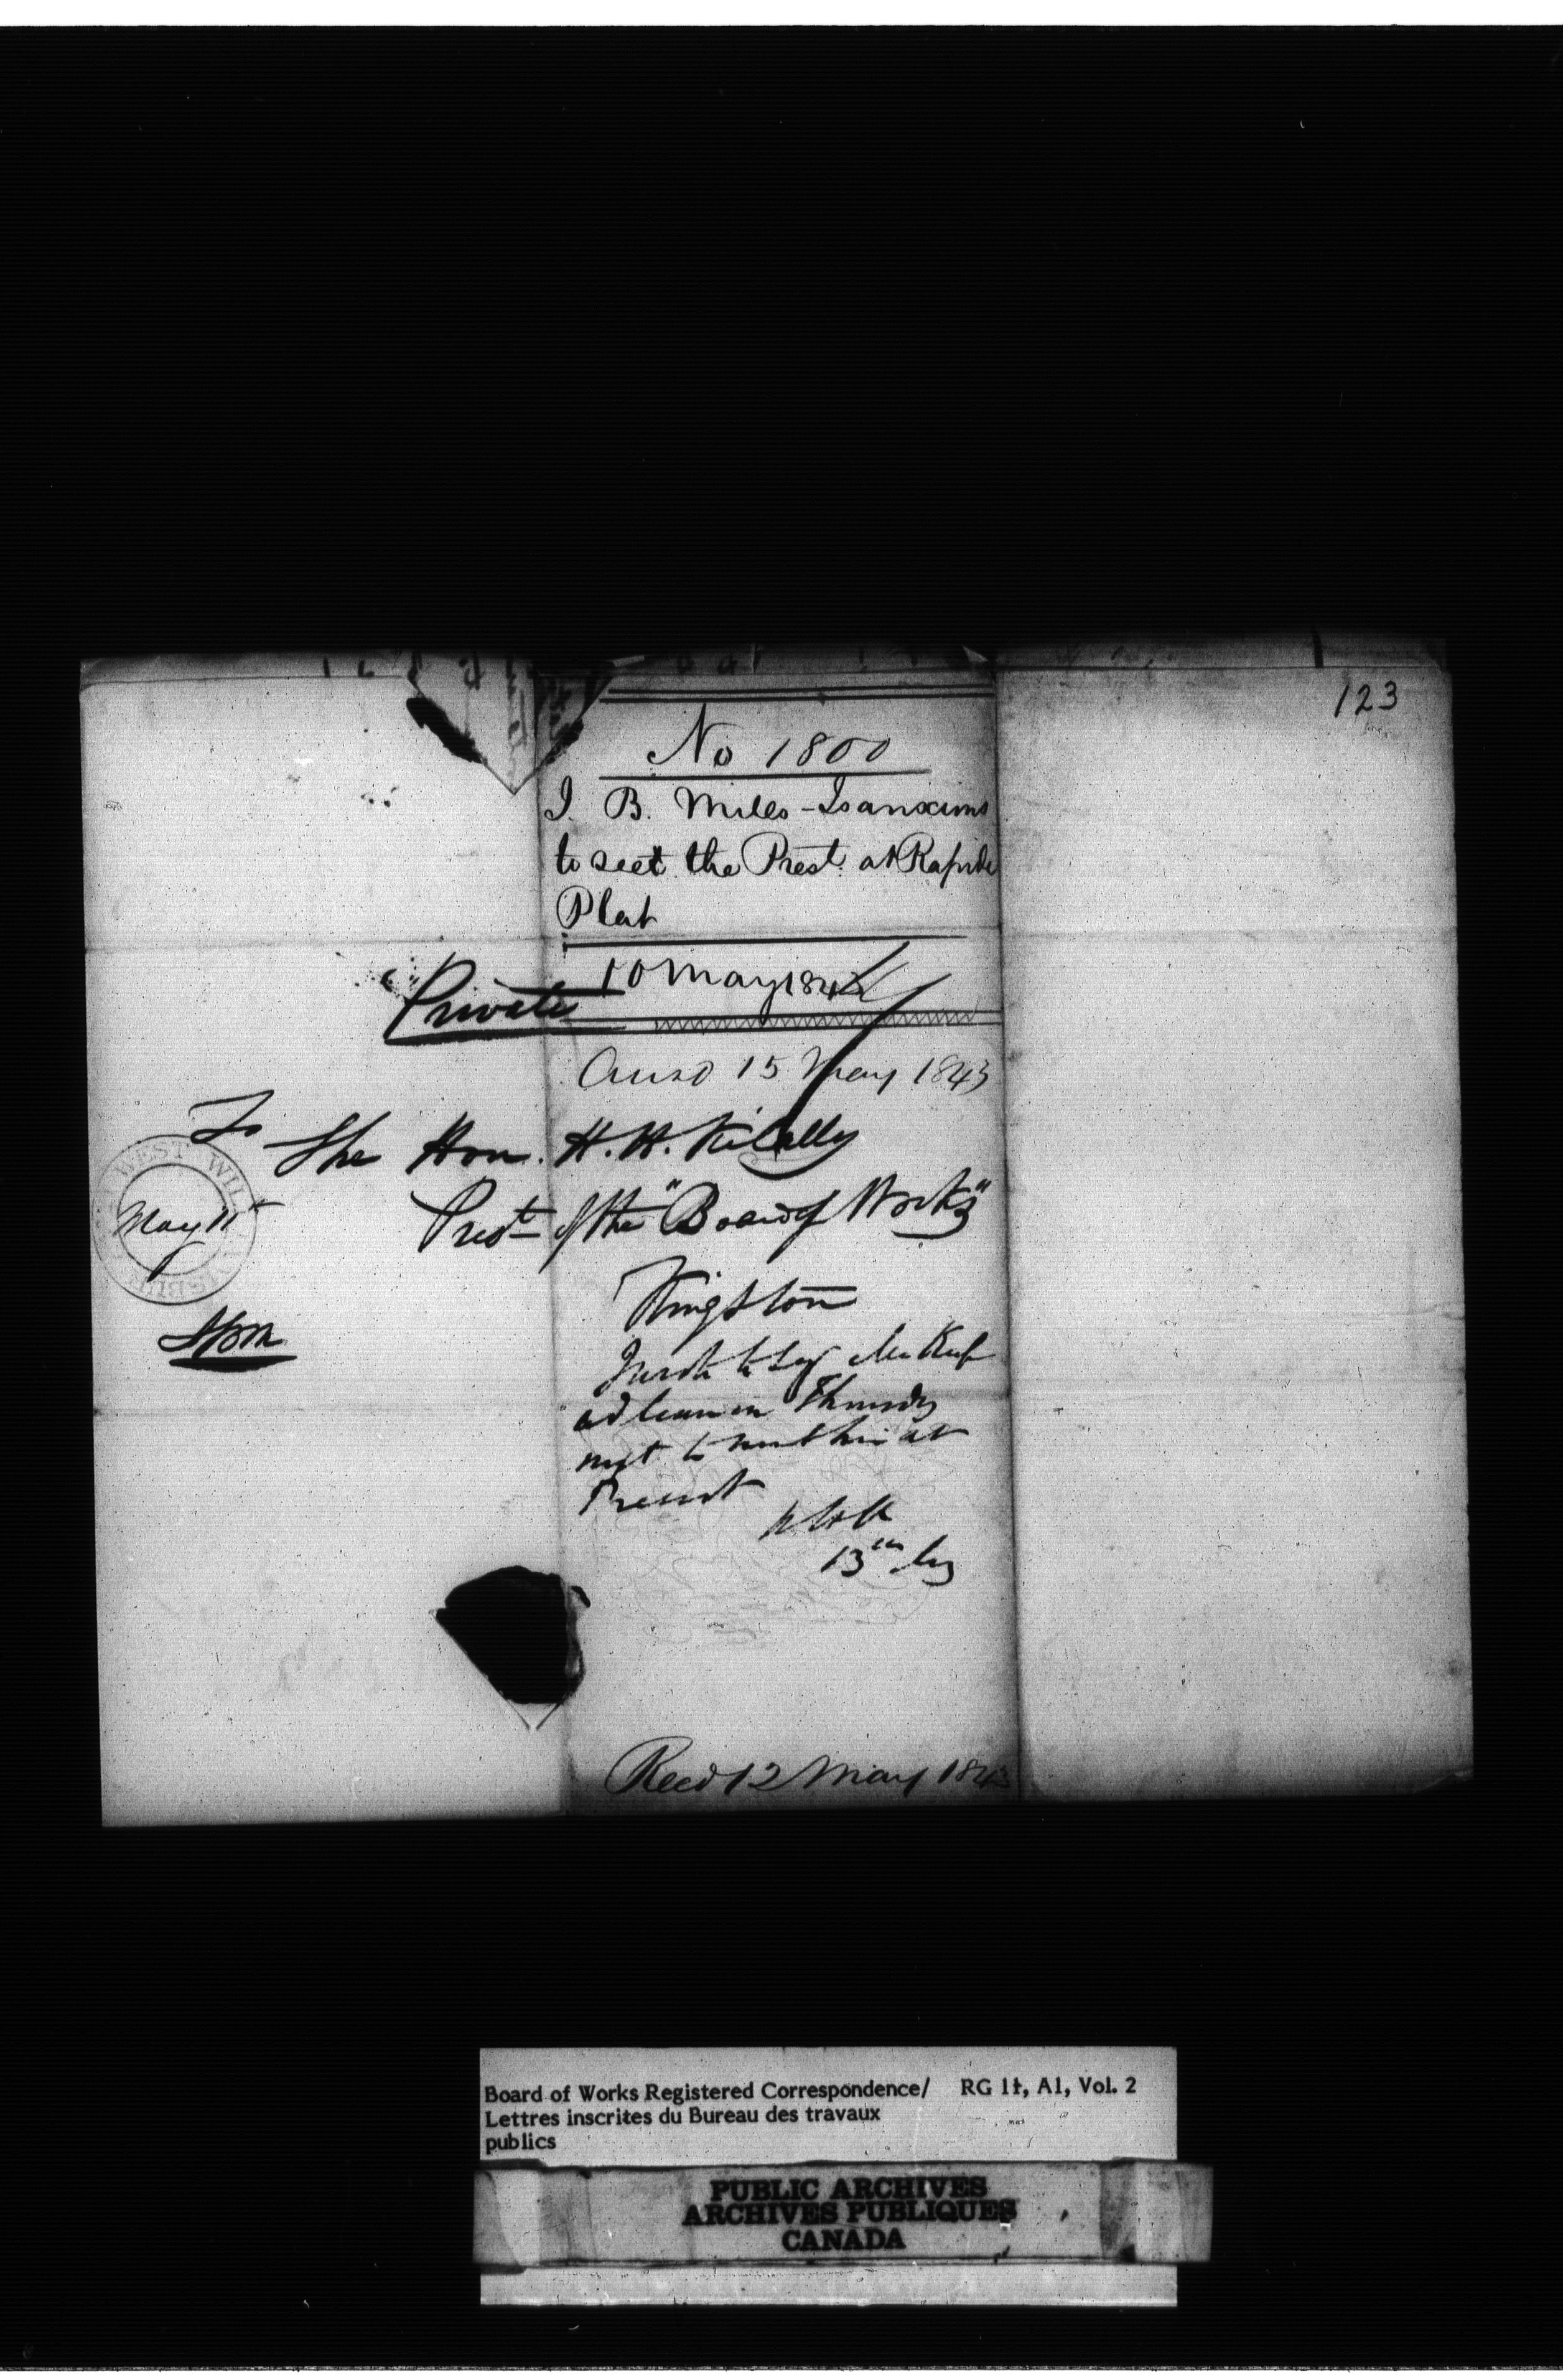 123
No 1800
J. B. Mills - Is anxious
to seet the Prest. at Rapide
Plat
10 May 184
Private
Ansd 15 May 1843
To
The Hon. H. H. Killaly
Prest of the "Board of Works"
Kingston
WEST WIL
May 11
to say
Thursday
next to meet him at
HHK
13th
Recd 12 May 1843
Board of Works Registered Correspondence/ RG 11, A1, Vol. 2
Lettres inscrites du Bureau des travaux
publics
PUBLIC ARCHIVES
ARCHIVES PUBLIQUES
CANADA